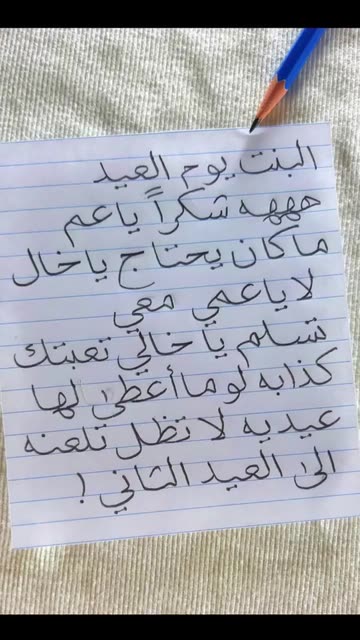 البنت يوم العيد
هههه شكراً ياعم
ماكان يحتاج ياخال
لا ياعمي معي
تسلم يا خالي تعبتك
كذابه لو ما أعطى لها
عيديه لا تظل تلعنه
الى العيد الثاني !